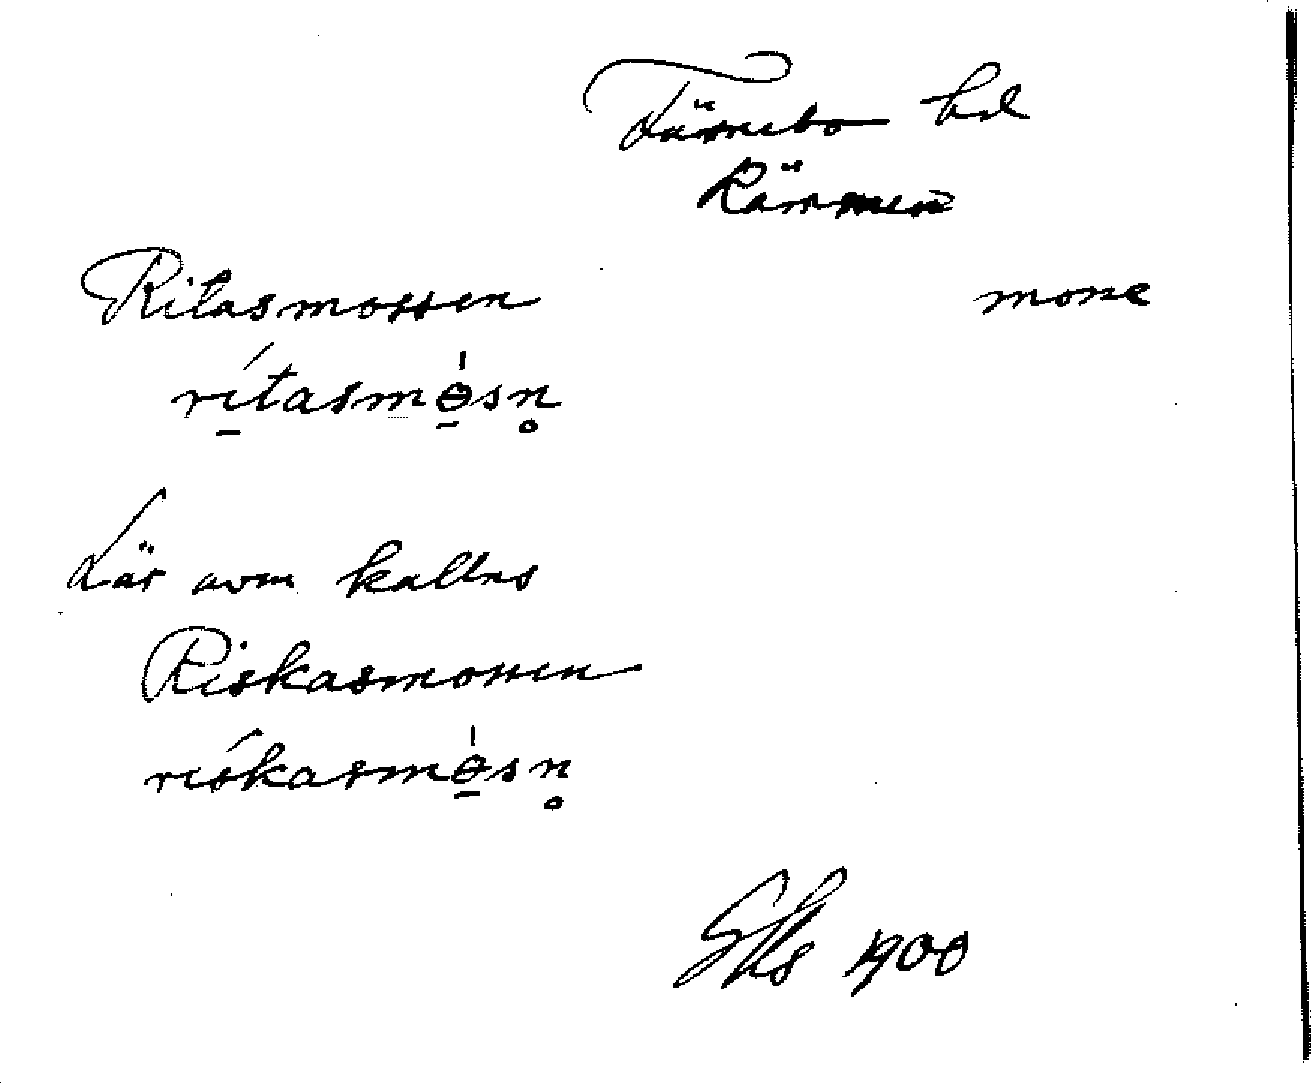 Färnebo hd
Rämmen
Ritasmossen mosse
rítasmòsn̥
Lär även kallas
Riskasmossen
rískasmòsn̥
1900